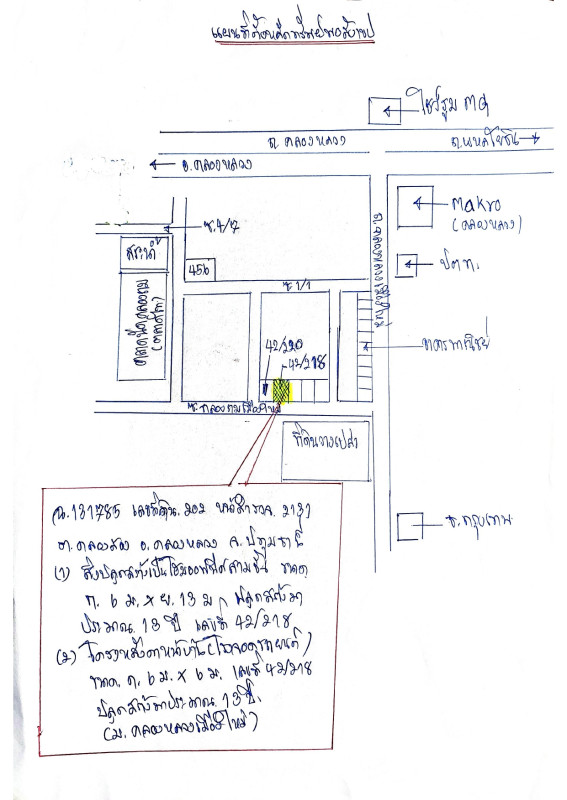 แผนที่ตั้งทรัพย์พอสังเขป
โชว์รูม
ถ.คลองหลวง
ถ.พหลโยธิน
อ.คลองหลวง
makro
(คลองหลวง)
ซ.4/2
สระน้ำ
456
ปตท.
ซ.1/1
ตลาดนัดคลองถม
42/220
42/218
อาคารพาณิชย์
ซ.คลองถมเมืองใหม่
ที่ดินว่างเปล่า
ธ.กรุงเทพ
ฉ.131785 เลขที่ดิน 202 หน้าสำรวจ 2131
ต.คลองสอง อ.คลองหลวง จ.ปทุมธานี
(1) สิ่งปลูกสร้างเป็นโฮมออฟฟิศสามชั้น ขนาด
ก. 6 ม. x ย. 13 ม. ปลูกสร้างมา
ประมาณ 13 ปี เลขที่ 42/218
(2) โครงหลังคาหน้าบ้าน (โรงจอดรถยนต์)
ขนาด ก. 6 ม. x 6 ม. เลขที่ 42/218
ปลูกสร้างมาประมาณ 13 ปี
(ม.คลองหลวงเมืองใหม่)